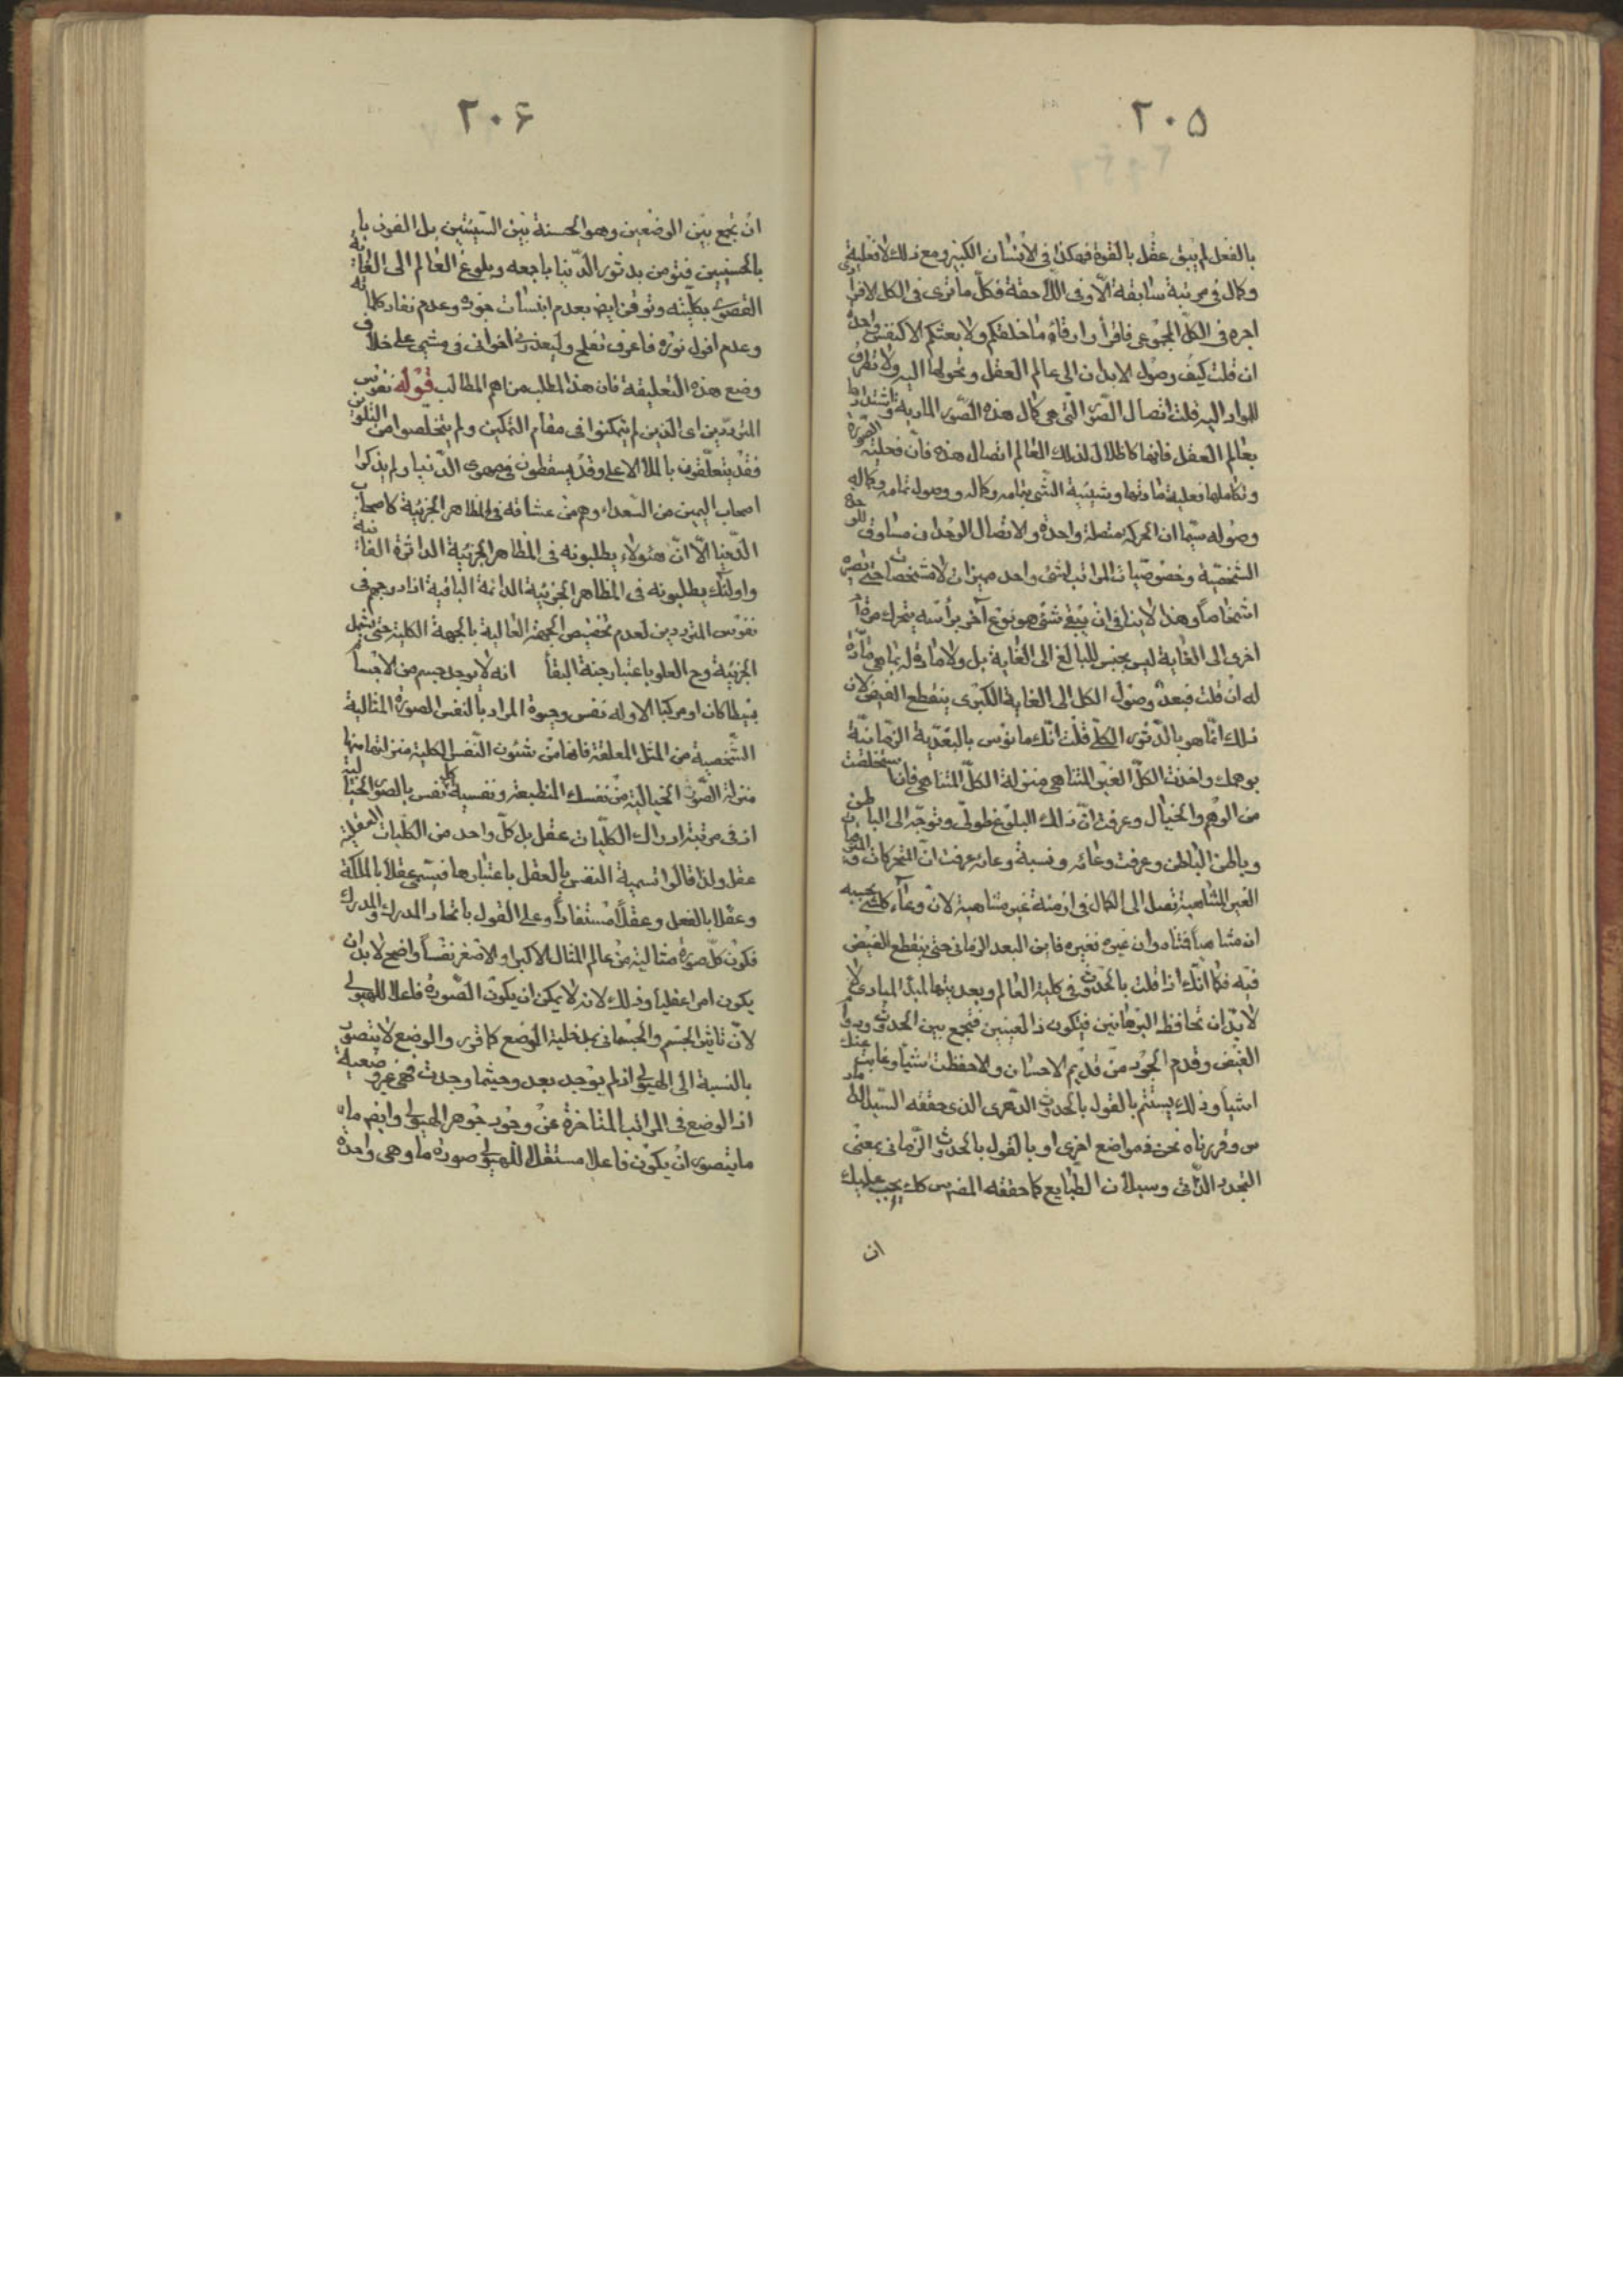 ٢٠٥
بالفعل لم يبق عقل بالقوة فهكذا فى الانسان الكبير ومع ذلك لا فعلية
وكمال فى مرتبة سابقة الّا وفى اللّاحقة فكلّ ما ترى فى الكل الافرا
اجره فى الكلّ المجموعى فاقرأ وارقأ وما خلقكم ولا بعثكم الا كنفس واحدة
ان قلت كيف وصول الابدان الى عالم العقل وتحولها اليه ولا تطرق
للمواد اليه قلت اتصال الصّور الّتى هى كمال هذه الصّور المادية واشتدادها
بعالم العقل فانها كاظلال لذلك العالم اتصال هذه فانّ فعليّة الصّورة
وتكاملها فعلية مادتها وشيئية الشّئ بتمامه وكماله ووصول تمامه وكماله
وصوله سيّما ان الحركة متصلة واحدة والاتصال الوحدانى مساوق للوحدة
الشخصيّة وخصوصيات المراتب لشئ واحد ميزان لا مشخصات حتى تصيره
اشخاصا وهذا لا ينافى ان يبقى شئ هو نوع آخر برأسه يتحرك مرة
اخرى الى الغاية ليس بجنس للبالغ الى الغاية بل ولا مادة له بما هى مادّة
له ان قلت فبعد وصول الكل الى الغاية الكبرى ينقطع الفيض لان
ذلك انّما هو بالدّثور الكلّى قلت انّك مأنوس بالبعّديّة الزّمانيّة
بوهمك واخذت الكلّ الغير المتناهى منزلة الكلّ المتناهى فاذا استخلصت
من الوهم والخيال وعرفت انّ ذلك البلوغ طولىّ وتوجّه الى الباطن
وباطن الباطن وعرفت وعائه ونسبة وعائه عرفت انّ المتحركات
الغير المتناهية تصل الى الكمال فى ازمنة غير متناهية لانّ وعاء كل شئ بحسبه
ان متناهيا فمتناه وان غيره فغيره فاين البعد الزمانى حتى ينقطع الفيض
فيه فكما انّك اذا قلت بالحدوث فى كلية العالم وبعديتها لمبدا المبادى
لا بدّ ان تحافظ البرهانين فتكون ذا العينين فتجمع بين الحدوث ودوام
الفيض وقدم الجود من قديم الاحسان ولا حفظت شيأ وغابت عنك
اشيأ وذلك يستتم بالقول بالحدوث الدّهرى الذى حققه السّيد الداماد
س وقررناه نحن فى مواضع اخرى او بالقول بالحدوث الزّمانى بمعنى
التجدد الذّاتى وسيلان الطّبايع كما حققه المص س كك يجب عليك
ان
٢٠۶
ان تجمع بين الوضعين وهو الحسنة بين السّيئتين بل الفوز با
بالحسنيين فتؤمن بدثور الدّنيا باجمعه وبلوغ العالم الى الغاية
القصوى بكلّيته وتوقن ايض بعدم انبتات جوده وعدم نفاد كلماته
وعدم افول نوره فاعرف تفلح وليعذرنى اخوانى فى مشيى على خلاف
وضع هذه التعليقة فان هذا المطلب من اهم المطالب قوله نفوس
المتردّدين اى الذين لم يتمكنوا فى مقام التمكين ولم يتخلّصوا من التلوين
فقد يتعلّقون بالملأ الاعلى وقد يسقطون فى مهوى الدّنيا ولم يذكرا
اصحاب اليمين من السّعداء وهم من عشاقه فى المظاهر الجزئية كاصحاب
الدّنيا الّا انّ هؤلاء يطلبونه فى المظاهر الجزئية الداثرة الفانية
واولئك يطلبونه فى المظاهر الجزئية الدائمة الباقية اذ ادرجهم فى
نفوس المترددين لعدم تخصيص الجهة العالية بالجهة الكلية حتى يشمل
الجزئية وح العلو باعتبار جنة البقأ انه لا يوجد جسم من الاجسام
بسيطا كان او مركبا الا وله نفس وحيوة المراد بالنفس الصورة المثالية
الشّخصية من المثل المعلقة فانها من شئون النّفس الكلية منزلتها منها
منزلة الصّور الخيالية من نفسك المنطبعة ونفسية كل نفس بالصّور الخيالية
اذ فى مرتبة ادراك الكلّيات عقل بل كلّ واحد من الكلّيات العقلية
عقل ولذا قالوا تسمية النفس بالعقل باعتبارها فيسمّى عقلا بالملكة
وعقلا بالفعل وعقلاً مستفاداً وعلى القول باتحاد المدرك والمدرك
فكون كلّ صورة مثالية من عالم المثال الاكبر او الاصغر نفسا واضح لا بد ان
يكون امرا عقليا وذلك لانه لا يمكن ان يكون الصّورة فاعلا للهيولى
لانّ تاثير الجسم والجسمانى بمدخلية الوضع كما قرر والوضع لا يتصور
بالنسبة الى الهيولى اذ لم يوجد بعد وحيثما وجدت فهى غير وضعية
اذ الوضع فى المراتب المتاخرة عن وجود جوهر الهيولى وايضم ما
ما يتصور ان يكون فاعلا مستقلا للهيولى صورة ما وهى واحدة